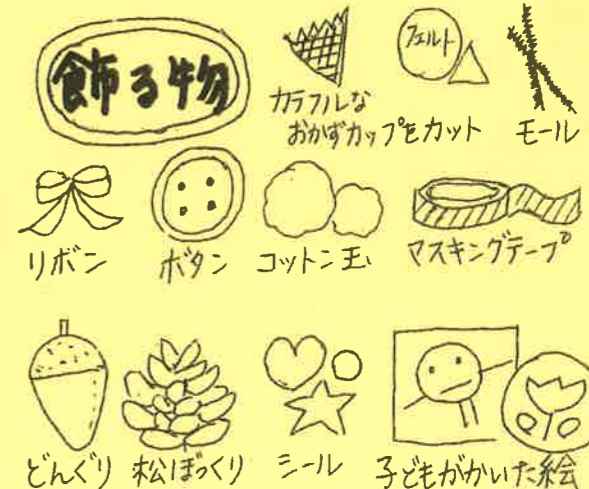 飾る物
カラフルな
おかずカップをカット
フェルト
モール
リボン
ボタン
コットン玉
マスキングテープ
どんぐり
松ぼっくり
シール
子どもがかいた絵